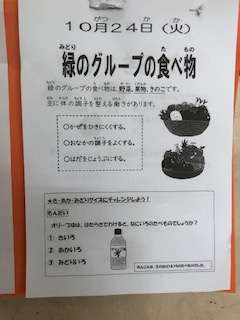 10月24日（火）
がつ か か
緑のグループの食べ物
みどり た もの
緑のグループの食べ物は、野菜、果物、きのこです。
主に体の調子を整える働きがあります。
○かぜをひきにくくする。
○おなかの調子をよくする。
○はだをじょうぶにする。
★き・あか・みどりクイズにチャレンジしよう！
もんだい
オリーブ油は、はたらきでわけると、なにいろのたべものでしょうか？
① きいろ
② あかいろ
③ みどりいろ